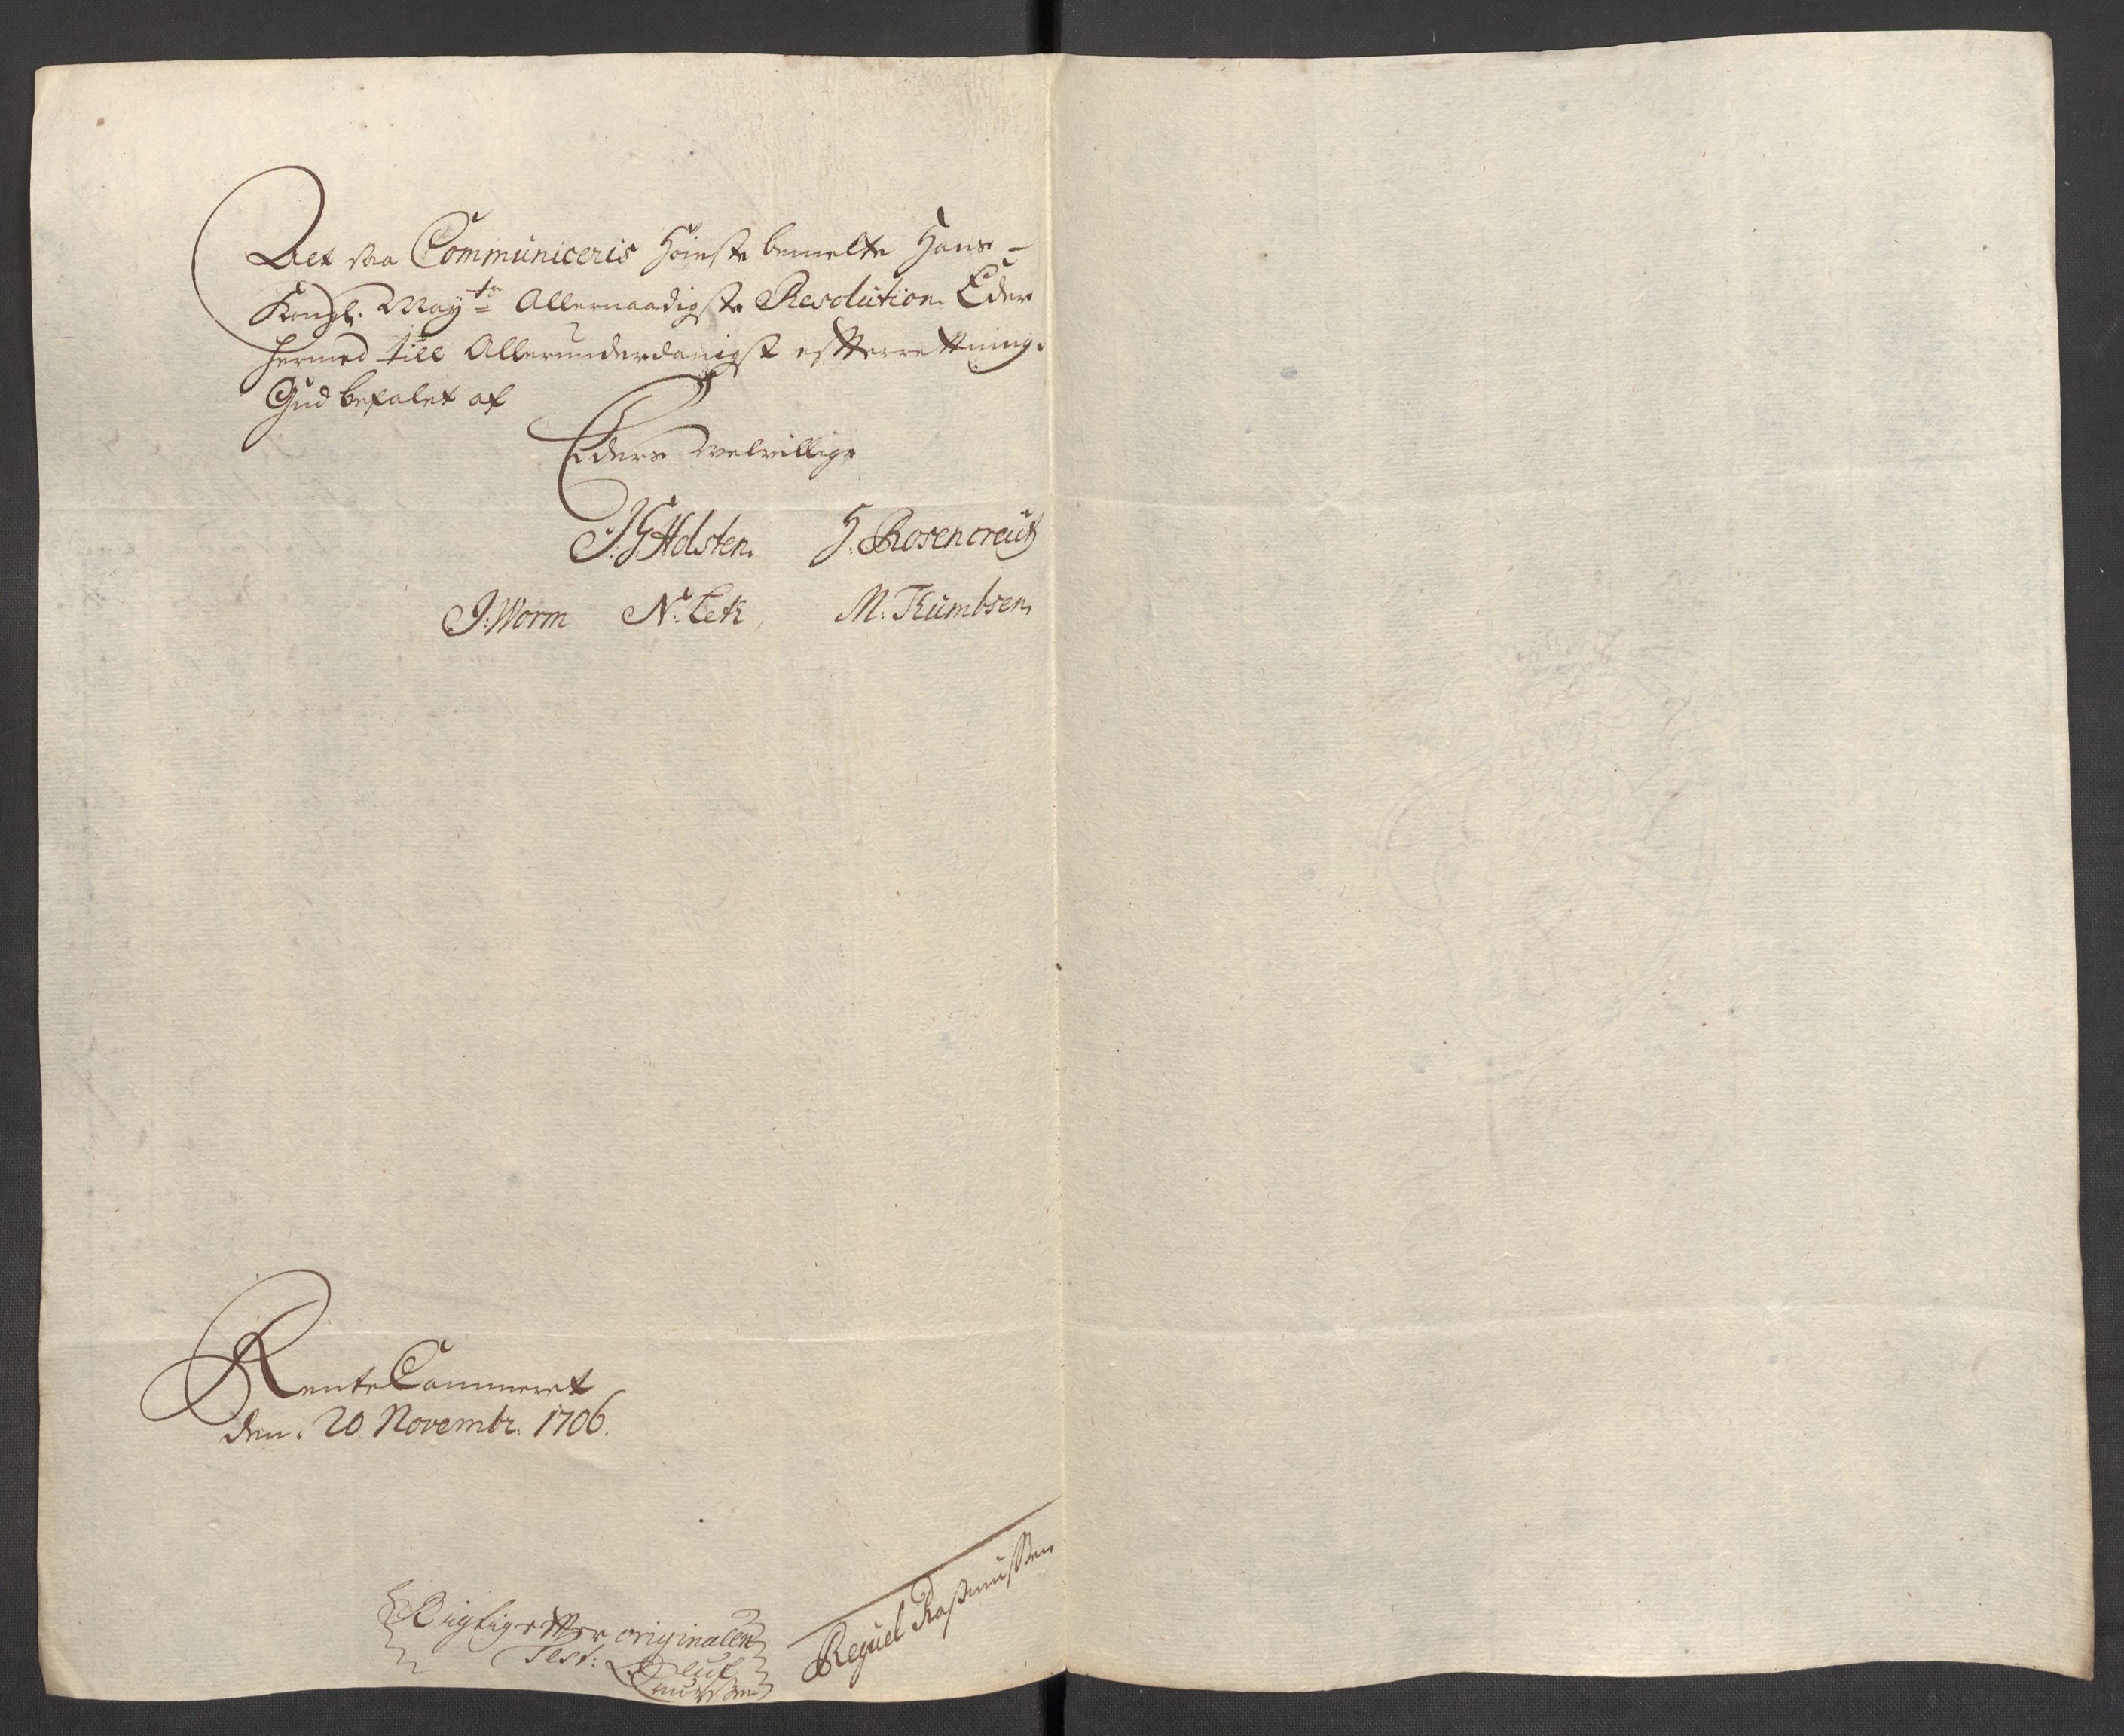 Det saa Communiceris Høieste bemelte Hans -
Kongl. May.ts Allernaadigste Resolution Eder
hermed till Allerunderdanigst efterrettning.
Gud befalet af
Eders velvillige
J: G Holsten. H. Rosencreütz
J: Worm N: Letz, M: Thumbsen
Rente Cammeret
den. 20 Novembr. 1706.
Rigtig efter originalen
Test:
Reguel Rasmussen